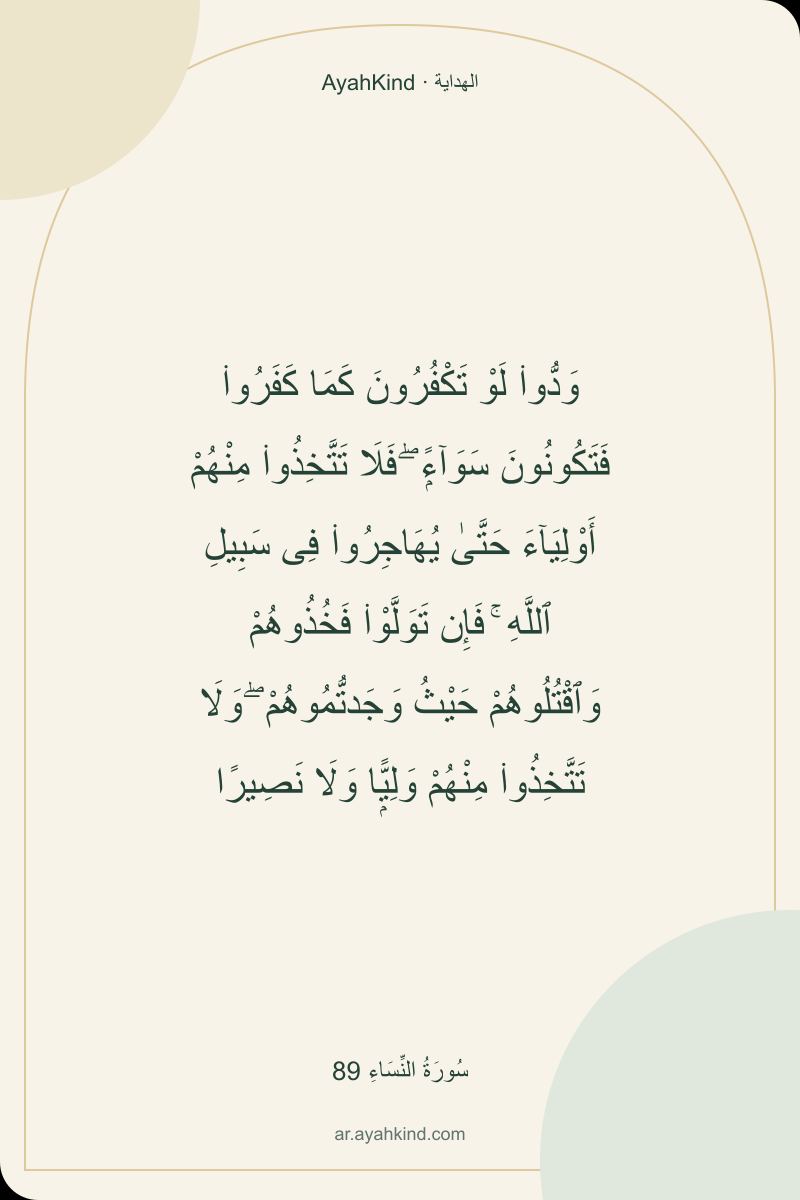 AyahKind · الهداية
وَدُّوا۟ لَوْ تَكْفُرُونَ كَمَا كَفَرُوا۟
فَتَكُونُونَ سَوَآءًۭ ۖ فَلَا تَتَّخِذُوا۟ مِنْهُمْ
أَوْلِيَآءَ حَتَّىٰ يُهَاجِرُوا۟ فِى سَبِيلِ
ٱللَّهِ ۚ فَإِن تَوَلَّوْا۟ فَخُذُوهُمْ
وَٱقْتُلُوهُمْ حَيْثُ وَجَدتُّمُوهُمْ ۖ وَلَا
تَتَّخِذُوا۟ مِنْهُمْ وَلِيًّۭا وَلَا نَصِيرًا
سُورَةُ النِّسَاءِ 89
ar.ayahkind.com